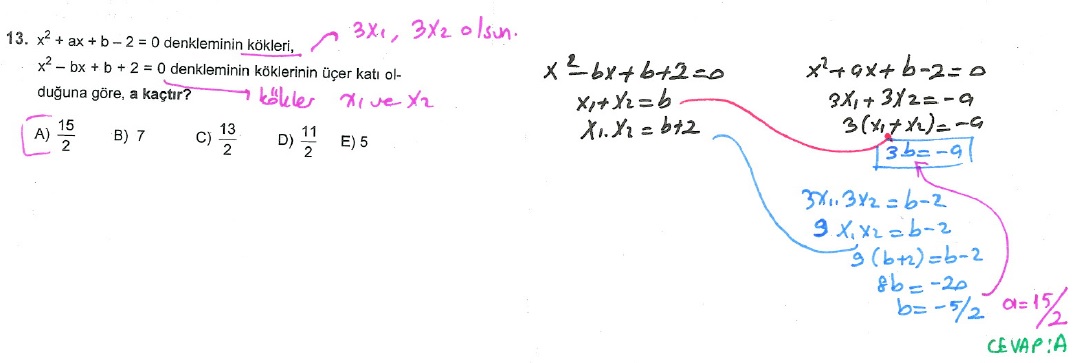 13. x² + ax + b – 2 = 0 denkleminin kökleri,
3x₁, 3x₂ olsun.
x² – bx + b + 2 = 0 denkleminin köklerinin üçer katı ol-
duğuna göre, a kaçtır?
kökler x₁ ve x₂
A) 15/2 B) 7 C) 13/2 D) 11/2 E) 5
x² – bx + b + 2 = 0
x₁ + x₂ = b
x₁ . x₂ = b+2
x² + ax + b – 2 = 0
3x₁ + 3x₂ = –a
3(x₁ + x₂) = –a
3b = –a
3x₁ . 3x₂ = b–2
9 x₁ x₂ = b–2
9 (b+2) = b–2
8b = –20
b = –5/2
a = 15/2
CEVAP : A